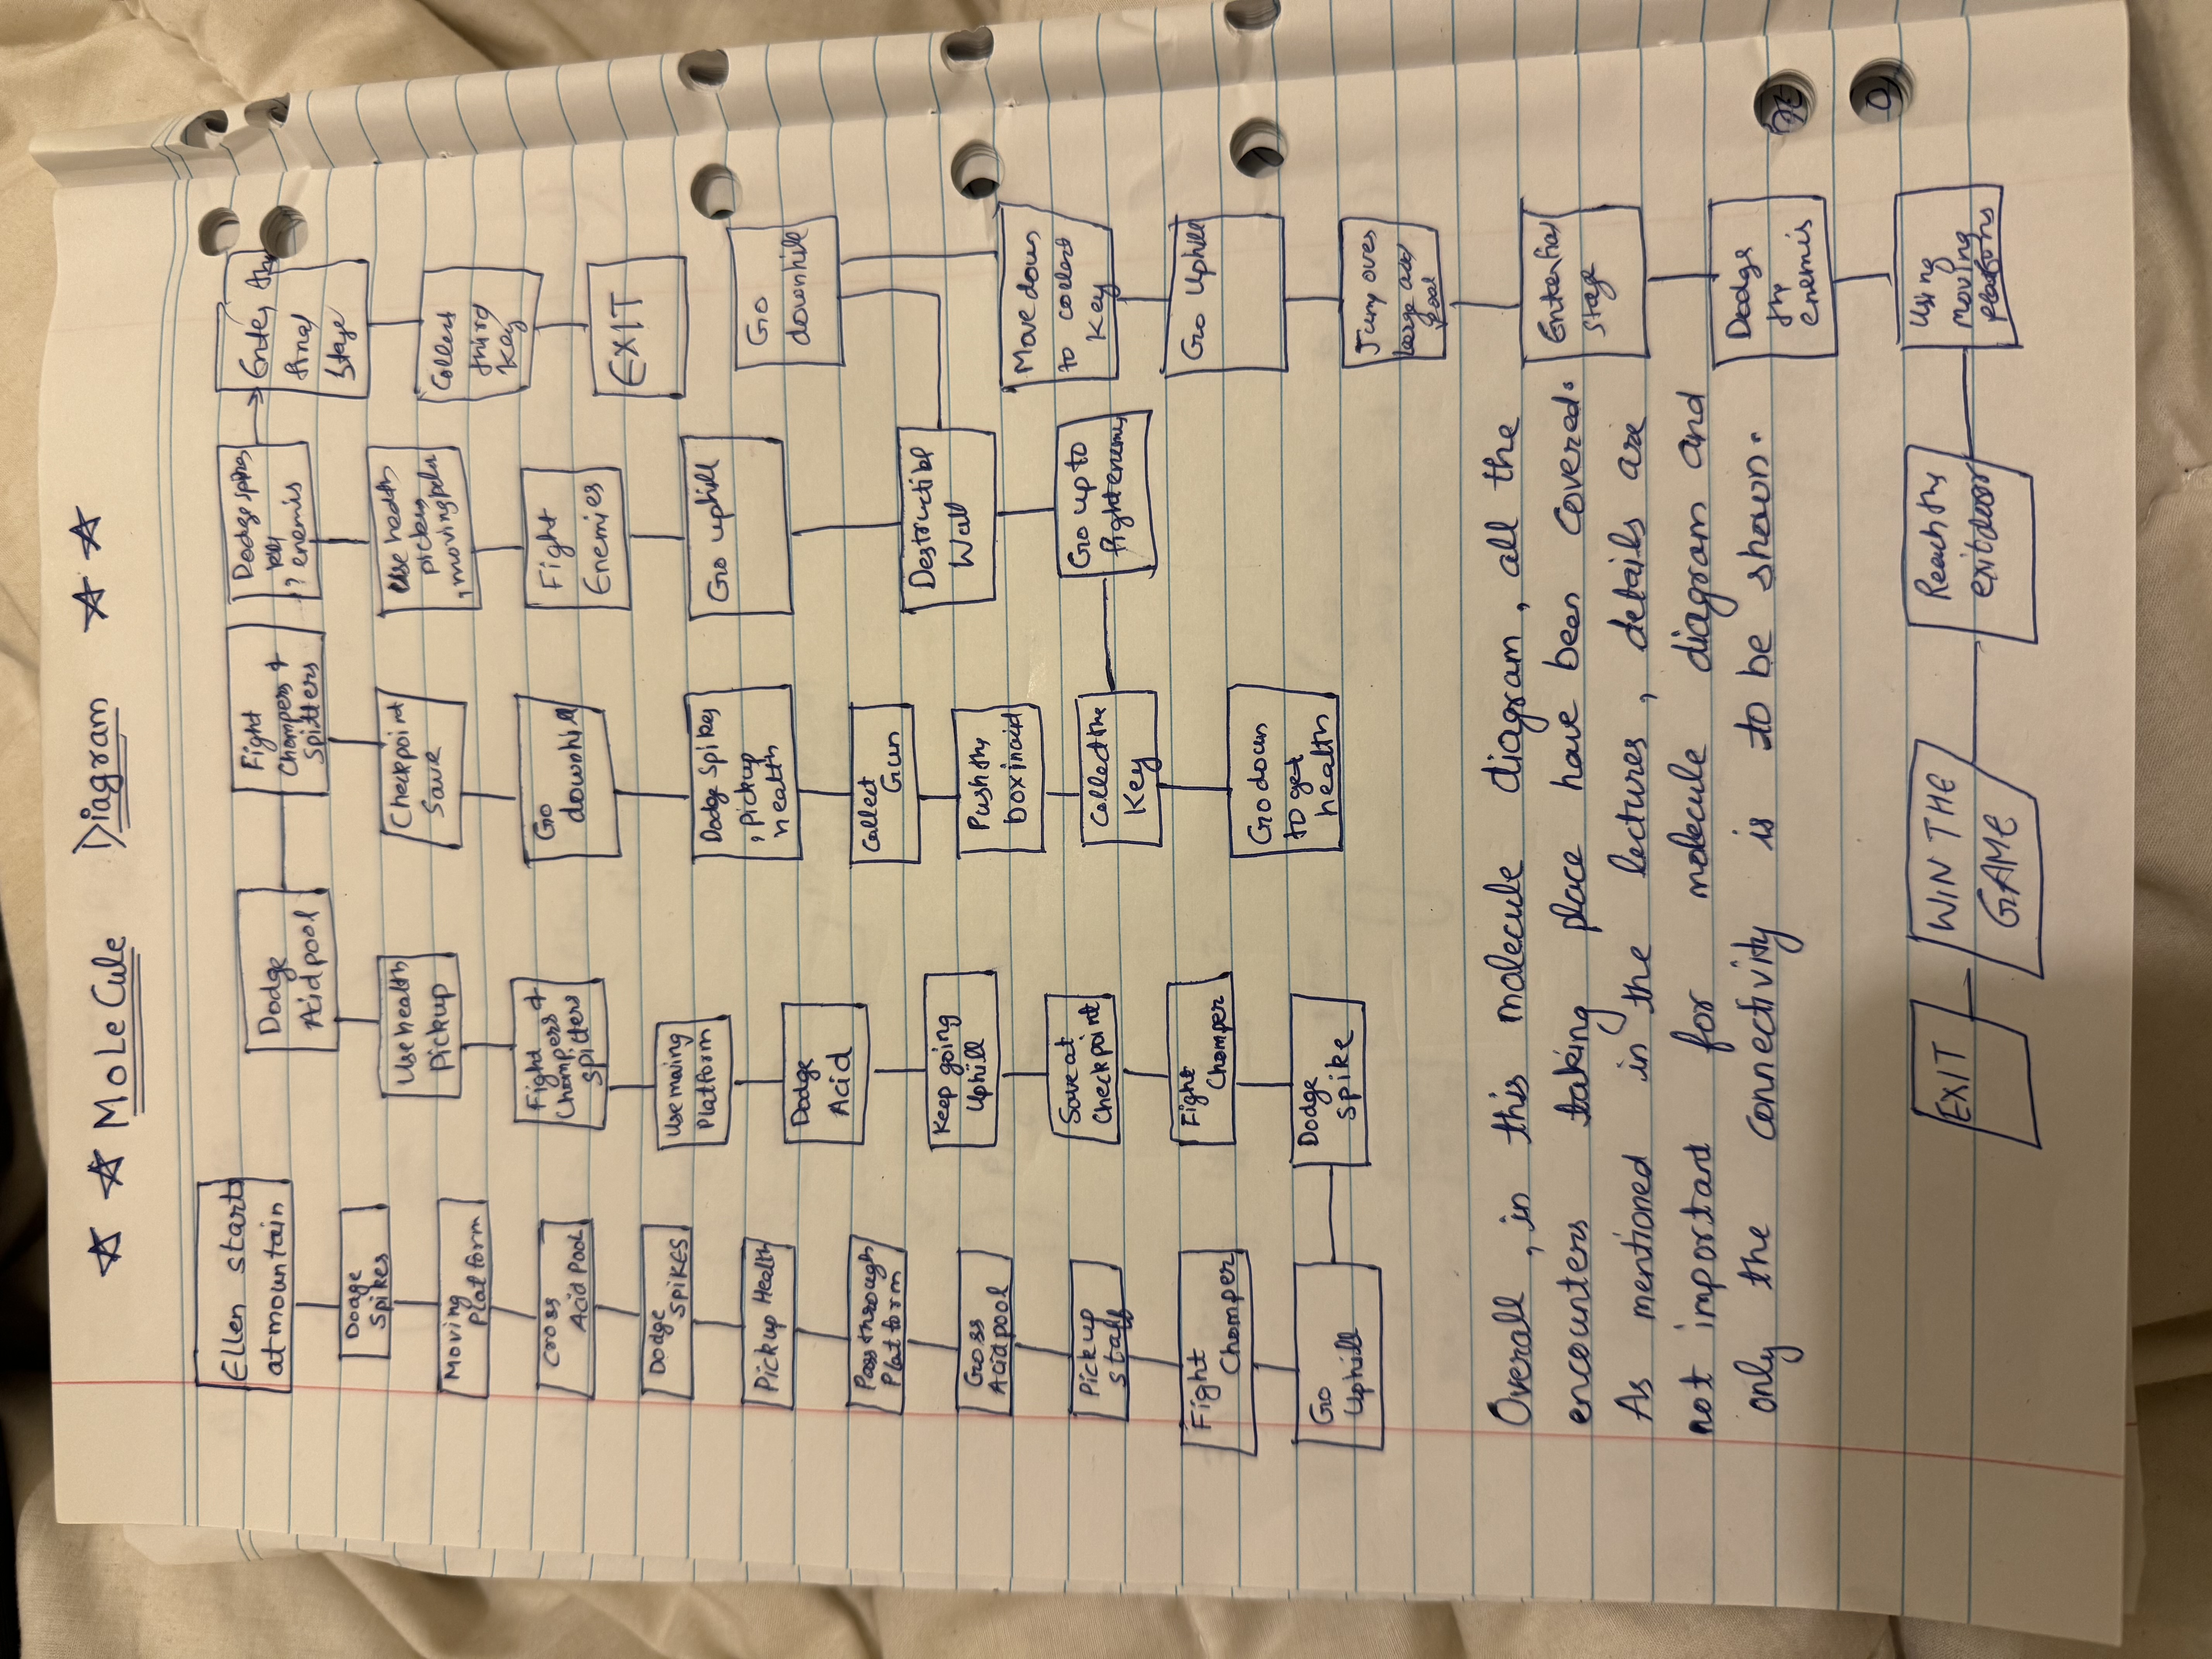 MoLeCule Diagram
Ellen starts
at mountain
Dodge
Spikes
Moving
Platform
Cross
Acid Pool
Dodge
SPIKES
Pickup Health
Pass through
Platform
Cross
Acidpool
Pickup
staff
Fight
Chomper
Go
Uphill
Dodge
Spike
Fight
Chomper
Save at
Checkpoint
Keep going
Uphill
Dodge
Acid
Use moving
Platform
Fight
Chompers &
Spitters
Use health
Pickup
Dodge
Acidpool
Fight
Chompers &
Spitters
Checkpoint
Save
Go
downhill
Dodge Spikes
, pickup
health
Collect
Gun
Push the
box in acid
Collect the
Key
Go down
to get
health
Go up to
fight enemis
Destructibl
Wall
Go uphill
Fight
Enemies
Use health
pickup
, moving
Dodge spikes
? enemis
Enter the
final
stage
Collect
third
Key
EXIT
Go
downhill
Move down
to collect
Key
Go Uphill
Jump over
large acid
pool
Enter final
stage
Dodge
the
enemis
Using
moving
platforms
Reach the
exit door
WIN THE
GAME
EXIT
Overall , in this molecule diagram, all the
encounters taking place have been covered.
As mentioned in the lectures, details are
not important for molecule diagram and
only the connectivity is to be shown.